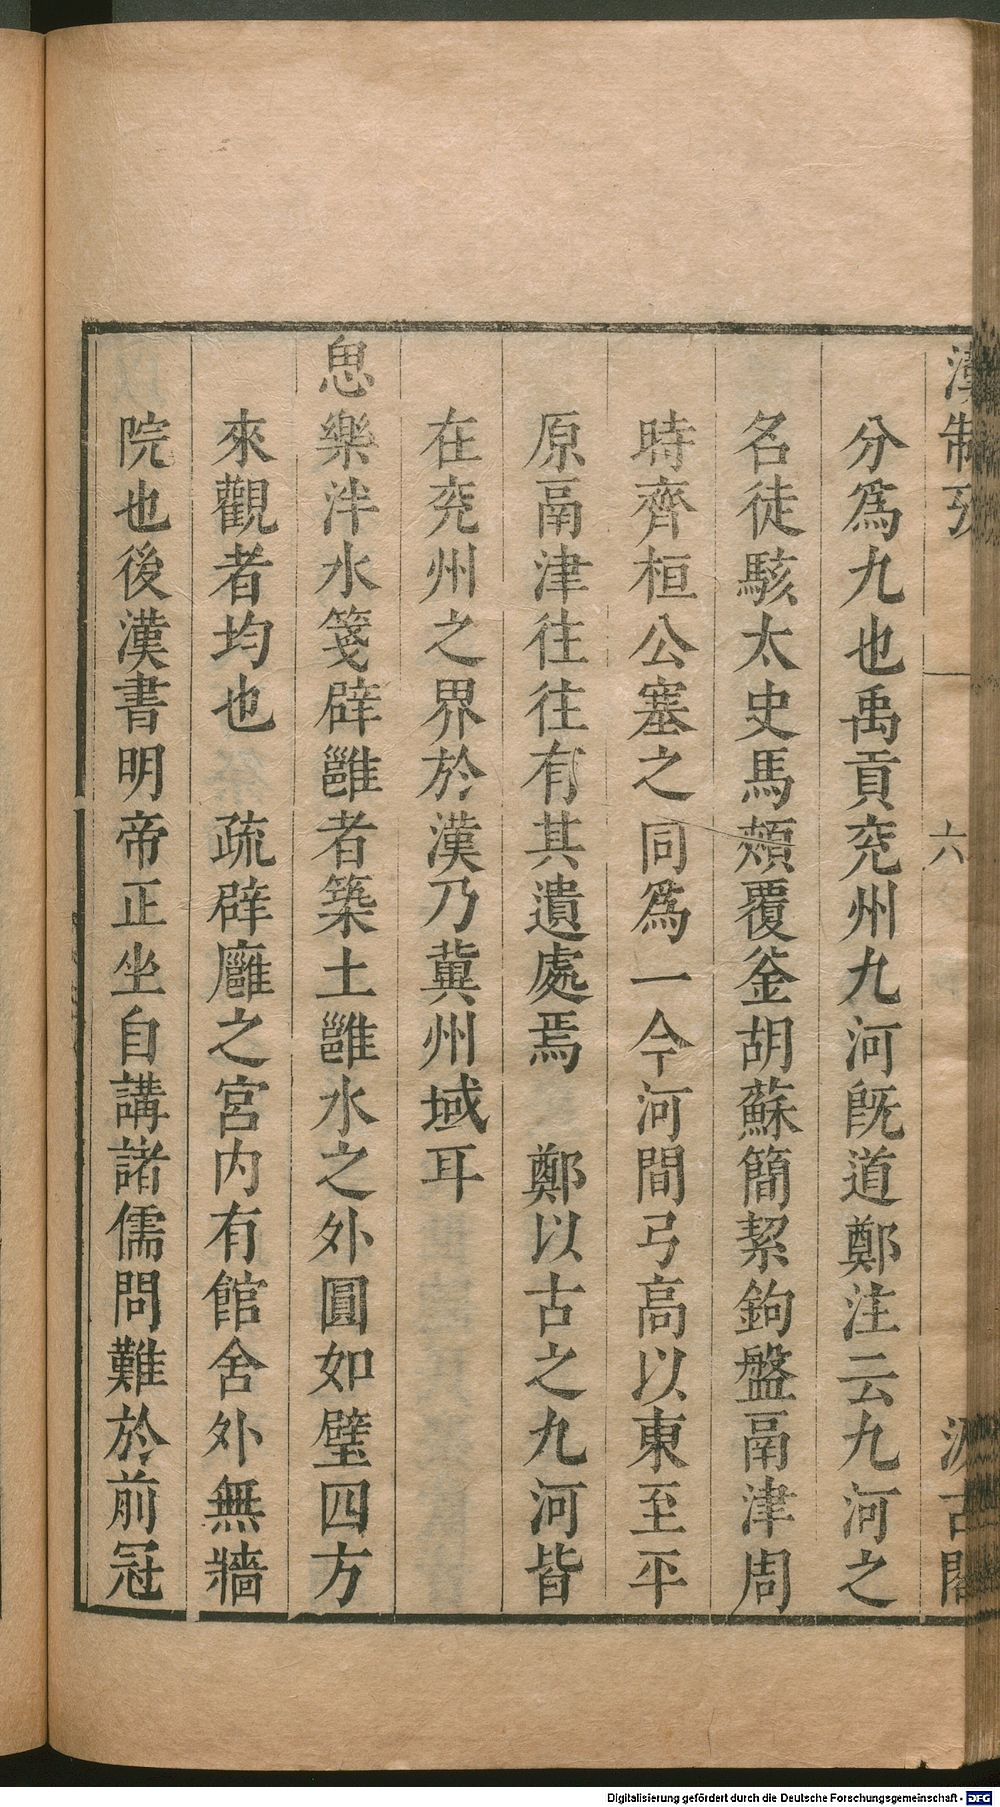 漢制攷
六
汲古閣
分爲九也禹貢兖州九河旣道鄭注云九河之
名徒駭太史馬頰覆釜胡蘇簡絜鉤盤鬲津周
時齊桓公塞之同爲一今河間弓高以東至平
原鬲津往往有其遺處焉　鄭以古之九河皆
在兖州之界於漢乃冀州域耳
思樂泮水箋辟雝者築土雝水之外圓如璧四方
來觀者均也　疏辟廱之宮内有館舍外無牆
院也後漢書明帝正坐自講諸儒問難於前冠
Digitalisierung gefördert durch die Deutsche Forschungsgemeinschaft - DFG